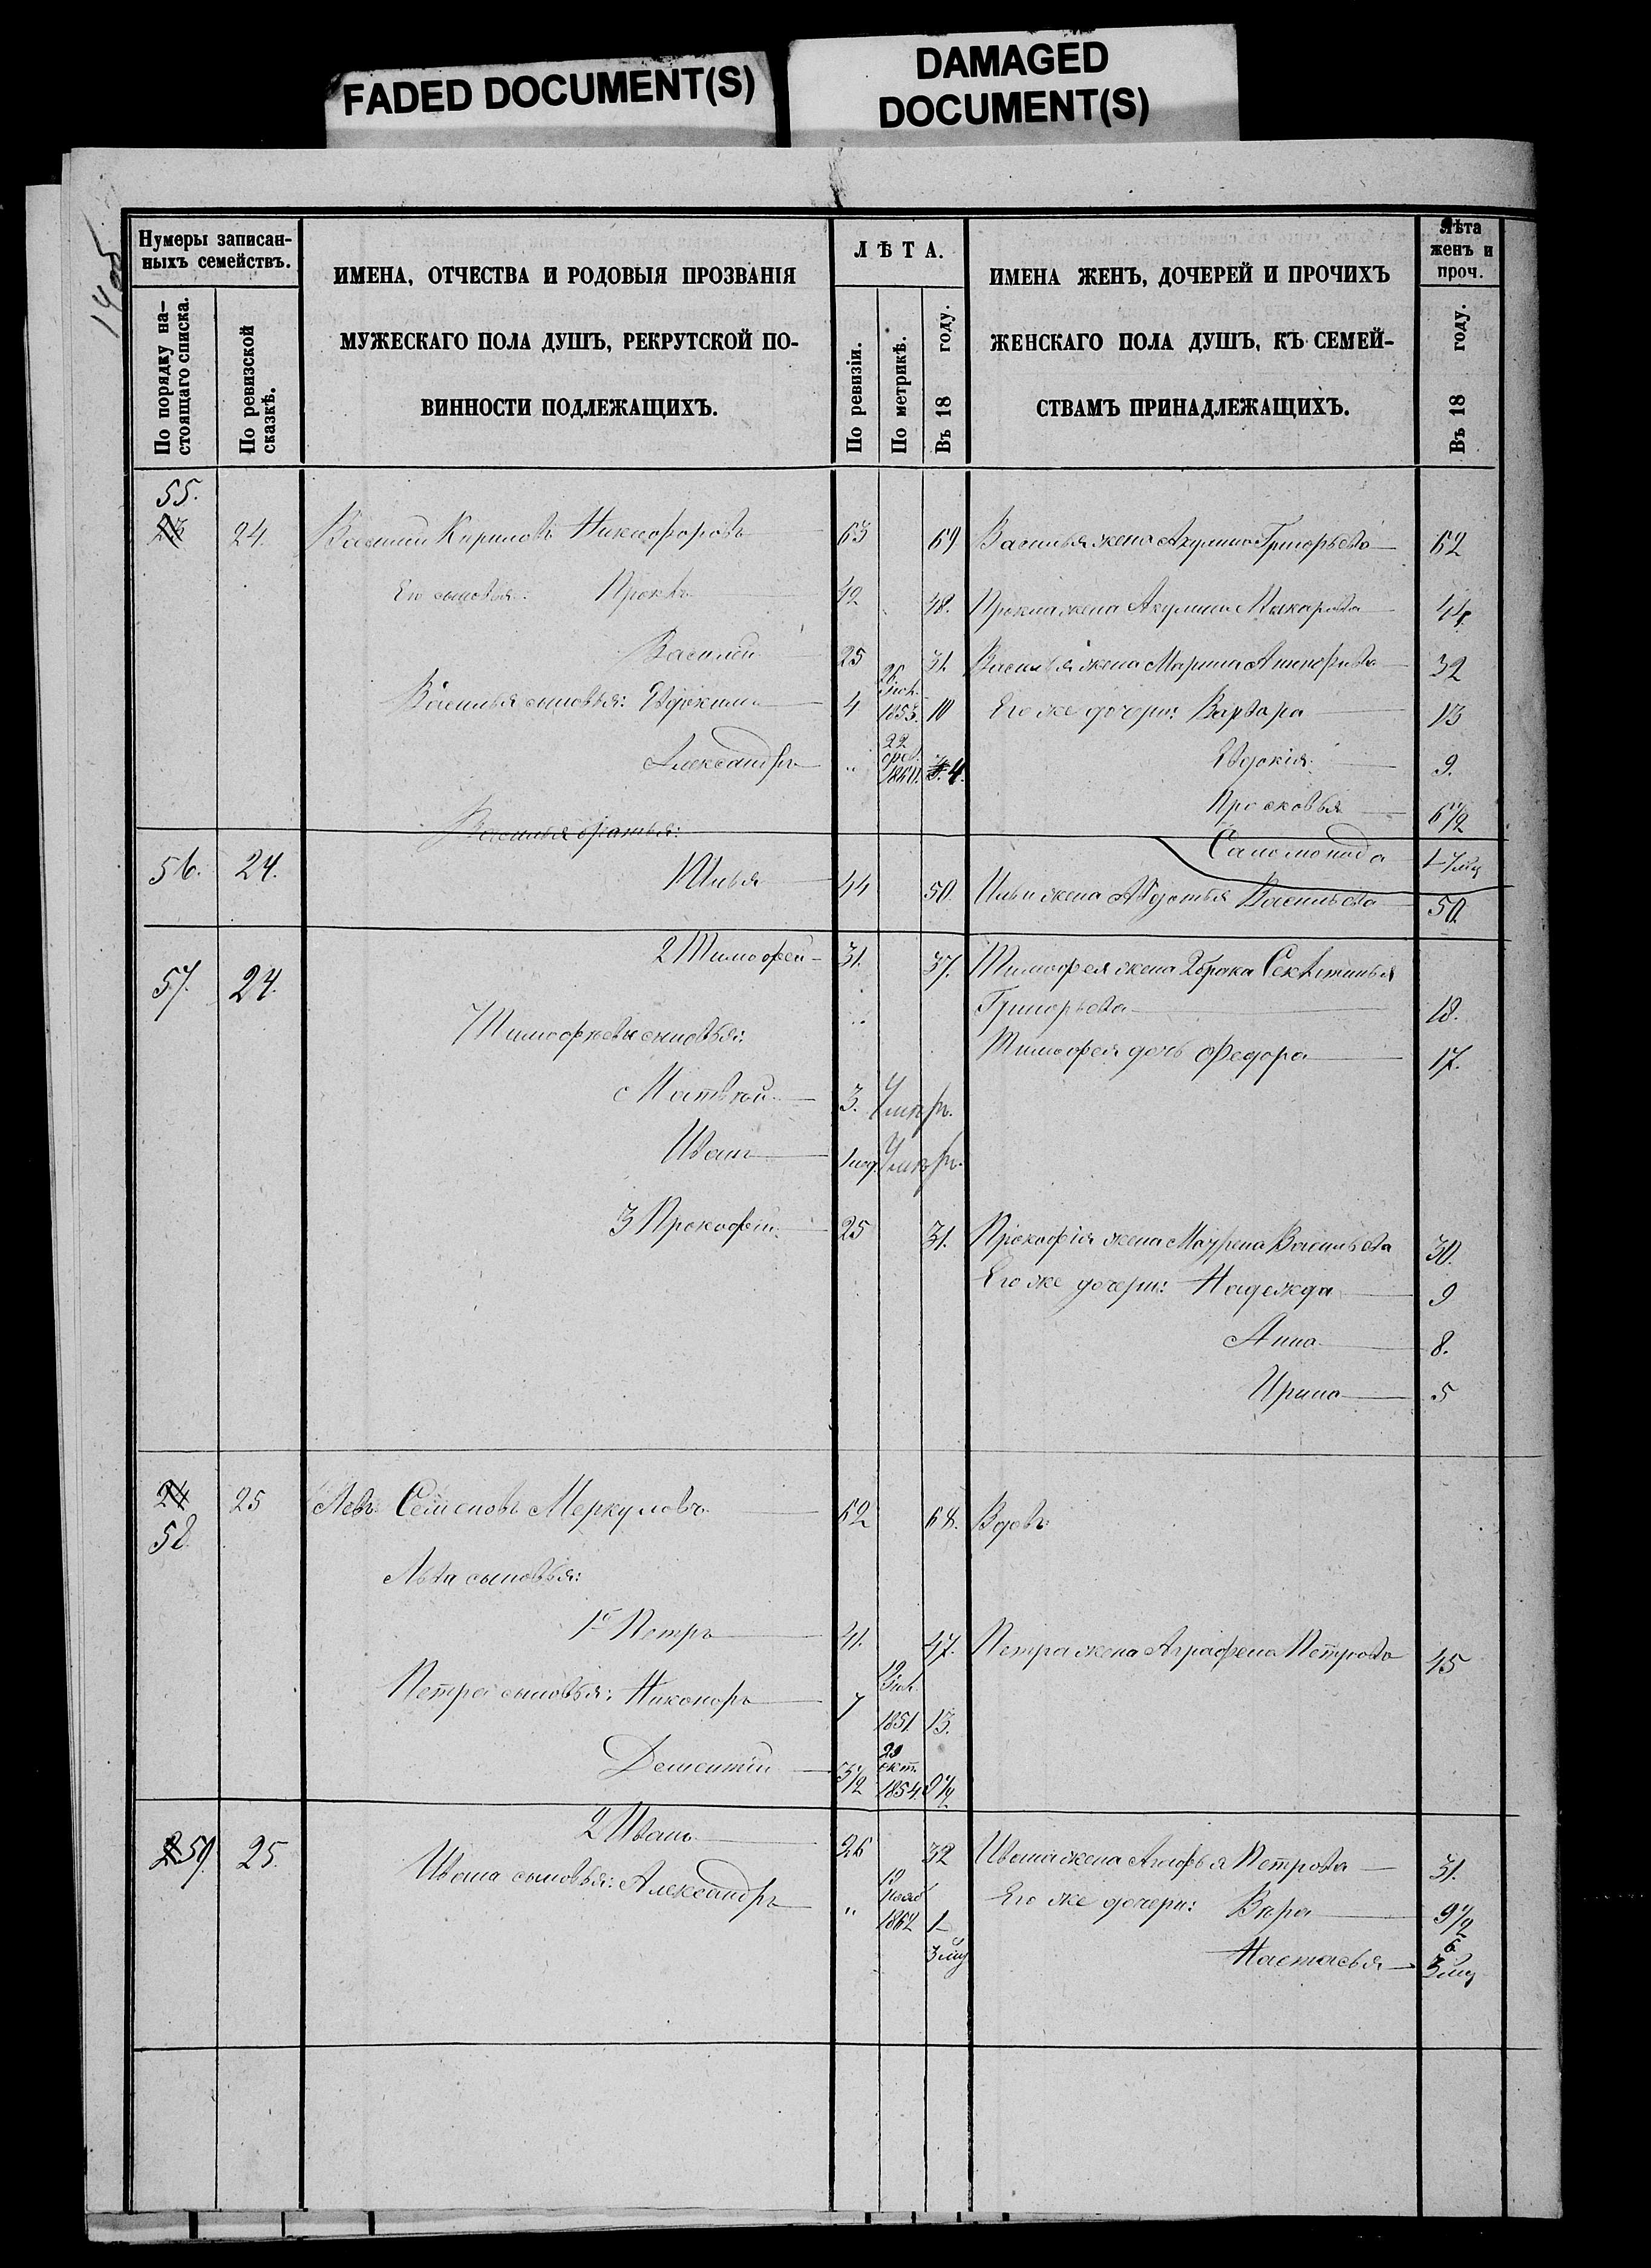 FADED DOCUMENT(S)
DAMAGED
DOCUMENT(S)
Нумеры записан-
ныхъ семействъ.
По порядку на-
стоящаго списка.
По ревизской
сказкѣ.
ИМЕНА, ОТЧЕСТВА И РОДОВЫЯ ПРОЗВАНІЯ
МУЖЕСКАГО ПОЛА ДУШЪ, РЕКРУТСКОЙ ПО-
ВИННОСТИ ПОДЛЕЖАЩИХЪ.
ЛѢТА.
По ревизіи.
По метрикѣ.
Въ 18 году.
ИМЕНА ЖЕНЪ, ДОЧЕРЕЙ И ПРОЧИХЪ
ЖЕНСКАГО ПОЛА ДУШЪ, КЪ СЕМЕЙ-
СТВАМЪ ПРИНАДЛЕЖАЩИХЪ.
Лѣта
женъ и
проч.
Въ 18 году.
55.
23 24. Василий Кириловъ Никифоровъ 63 69 Василья жена Акулина Григорьева 62
Его сыновья: Проклъ 42 48. Прокла жена Акулина Макарова 44.
Василий 25 31. Василья жена Марина 32
Василья сыновья: Евдокимъ 4 26 1853. 10 Его же дочери: Варвара 13
Александръ " 22 фев. 4. Евдокія 9.
Просковья 6 1/2
Василья братья:
Саломонида 7 мц
56. 24. 1 Илья 44 50. Ильи жена Авдотья Васильева 50.
57. 24. 2 Тимофей 31. 37. Тимофея жена 2 брака Секлетинья
Григорьева 18.
Тимофѣевы сыновья:
Тимофея дочь Федора 17.
Матвей 3. Умеръ.
Иванъ 1 нед. Умеръ.
3 Прокофей 25 31. Прокофія жена Маурена Васильева 30.
Его же дочери: Надежда 9
Анна 8.
Ирина 5
24 25 Левъ Семеновъ Меркуловъ 62 68. Вдовъ
58.
Льва сыновья:
1й Петръ 41. 47. Петра жена Аграфена Петрова 45
Петра сыновья: Никоноръ 7 19 1851 13.
Дементий 3 1/2 29 окт. 1854 9 1/2
59. 25. 2 Иванъ 26 32 Ивана жена Агафья Петрова 31.
Ивана сыновья: Александръ " нояб 1862 1 Его же дочери: Вера 9 1/2
3 мц Настасья 6. 3 мц